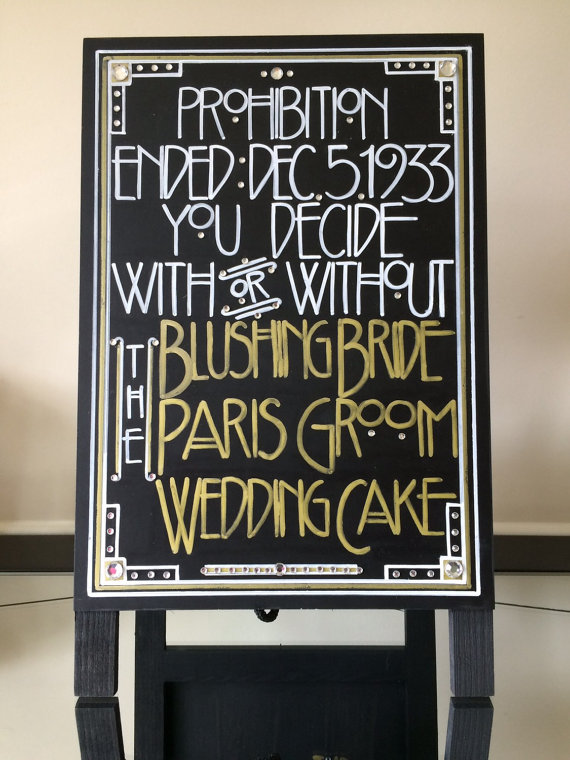 PROHIBITION
ENDED:DEC.5.1933
YOU DECIDE
WITH OR WITHOUT
THE
BLUSHING BRIDE
PARIS GROOM
WEDDING CAKE